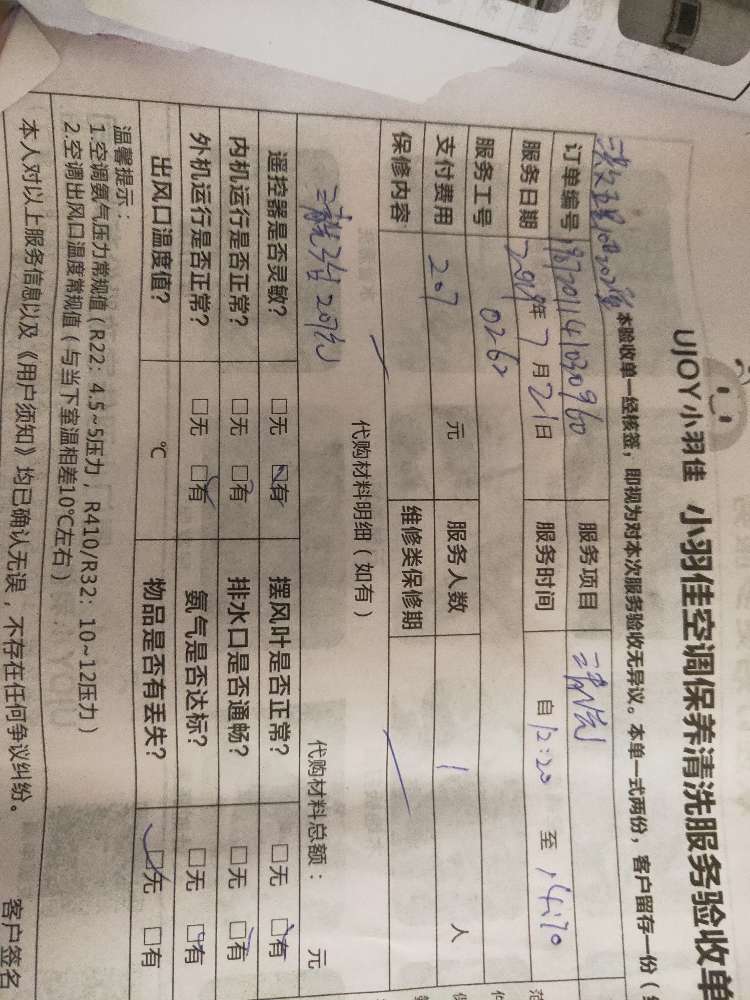 UJOY小羽佳 小羽佳空调保养清洗服务验收单
本验收单一经核签，即视为对本次服务验收无异议。本单一式两份，客户留存一份（
订单编号 服务项目 清洗
服务日期 年 7 月 21 日 服务时间 自 12:20 至
服务工号 0262
支付费用 207 元 服务人数 1 人
保修内容 维修类保修期
代购材料明细（如有）
代购材料总额： 元
遥控器是否灵敏？ □无 □有 摆风叶是否正常？ □无 □有
内机运行是否正常？ □无 □有 排水口是否通畅？ □无 □有
外机运行是否正常？ □无 □有 氨气是否达标？ □无 □有
出风口温度值？ ℃ 物品是否有丢失？ □无 □有
温馨提示：
1.空调氨气压力常规值（R22：4.5~5压力，R410/R32：10~12压力）
2.空调出风口温度常规值（与当下室温相差10℃左右）
本人对以上服务信息以及《用户须知》均已确认无误，不存在任何争议纠纷。 客户签名